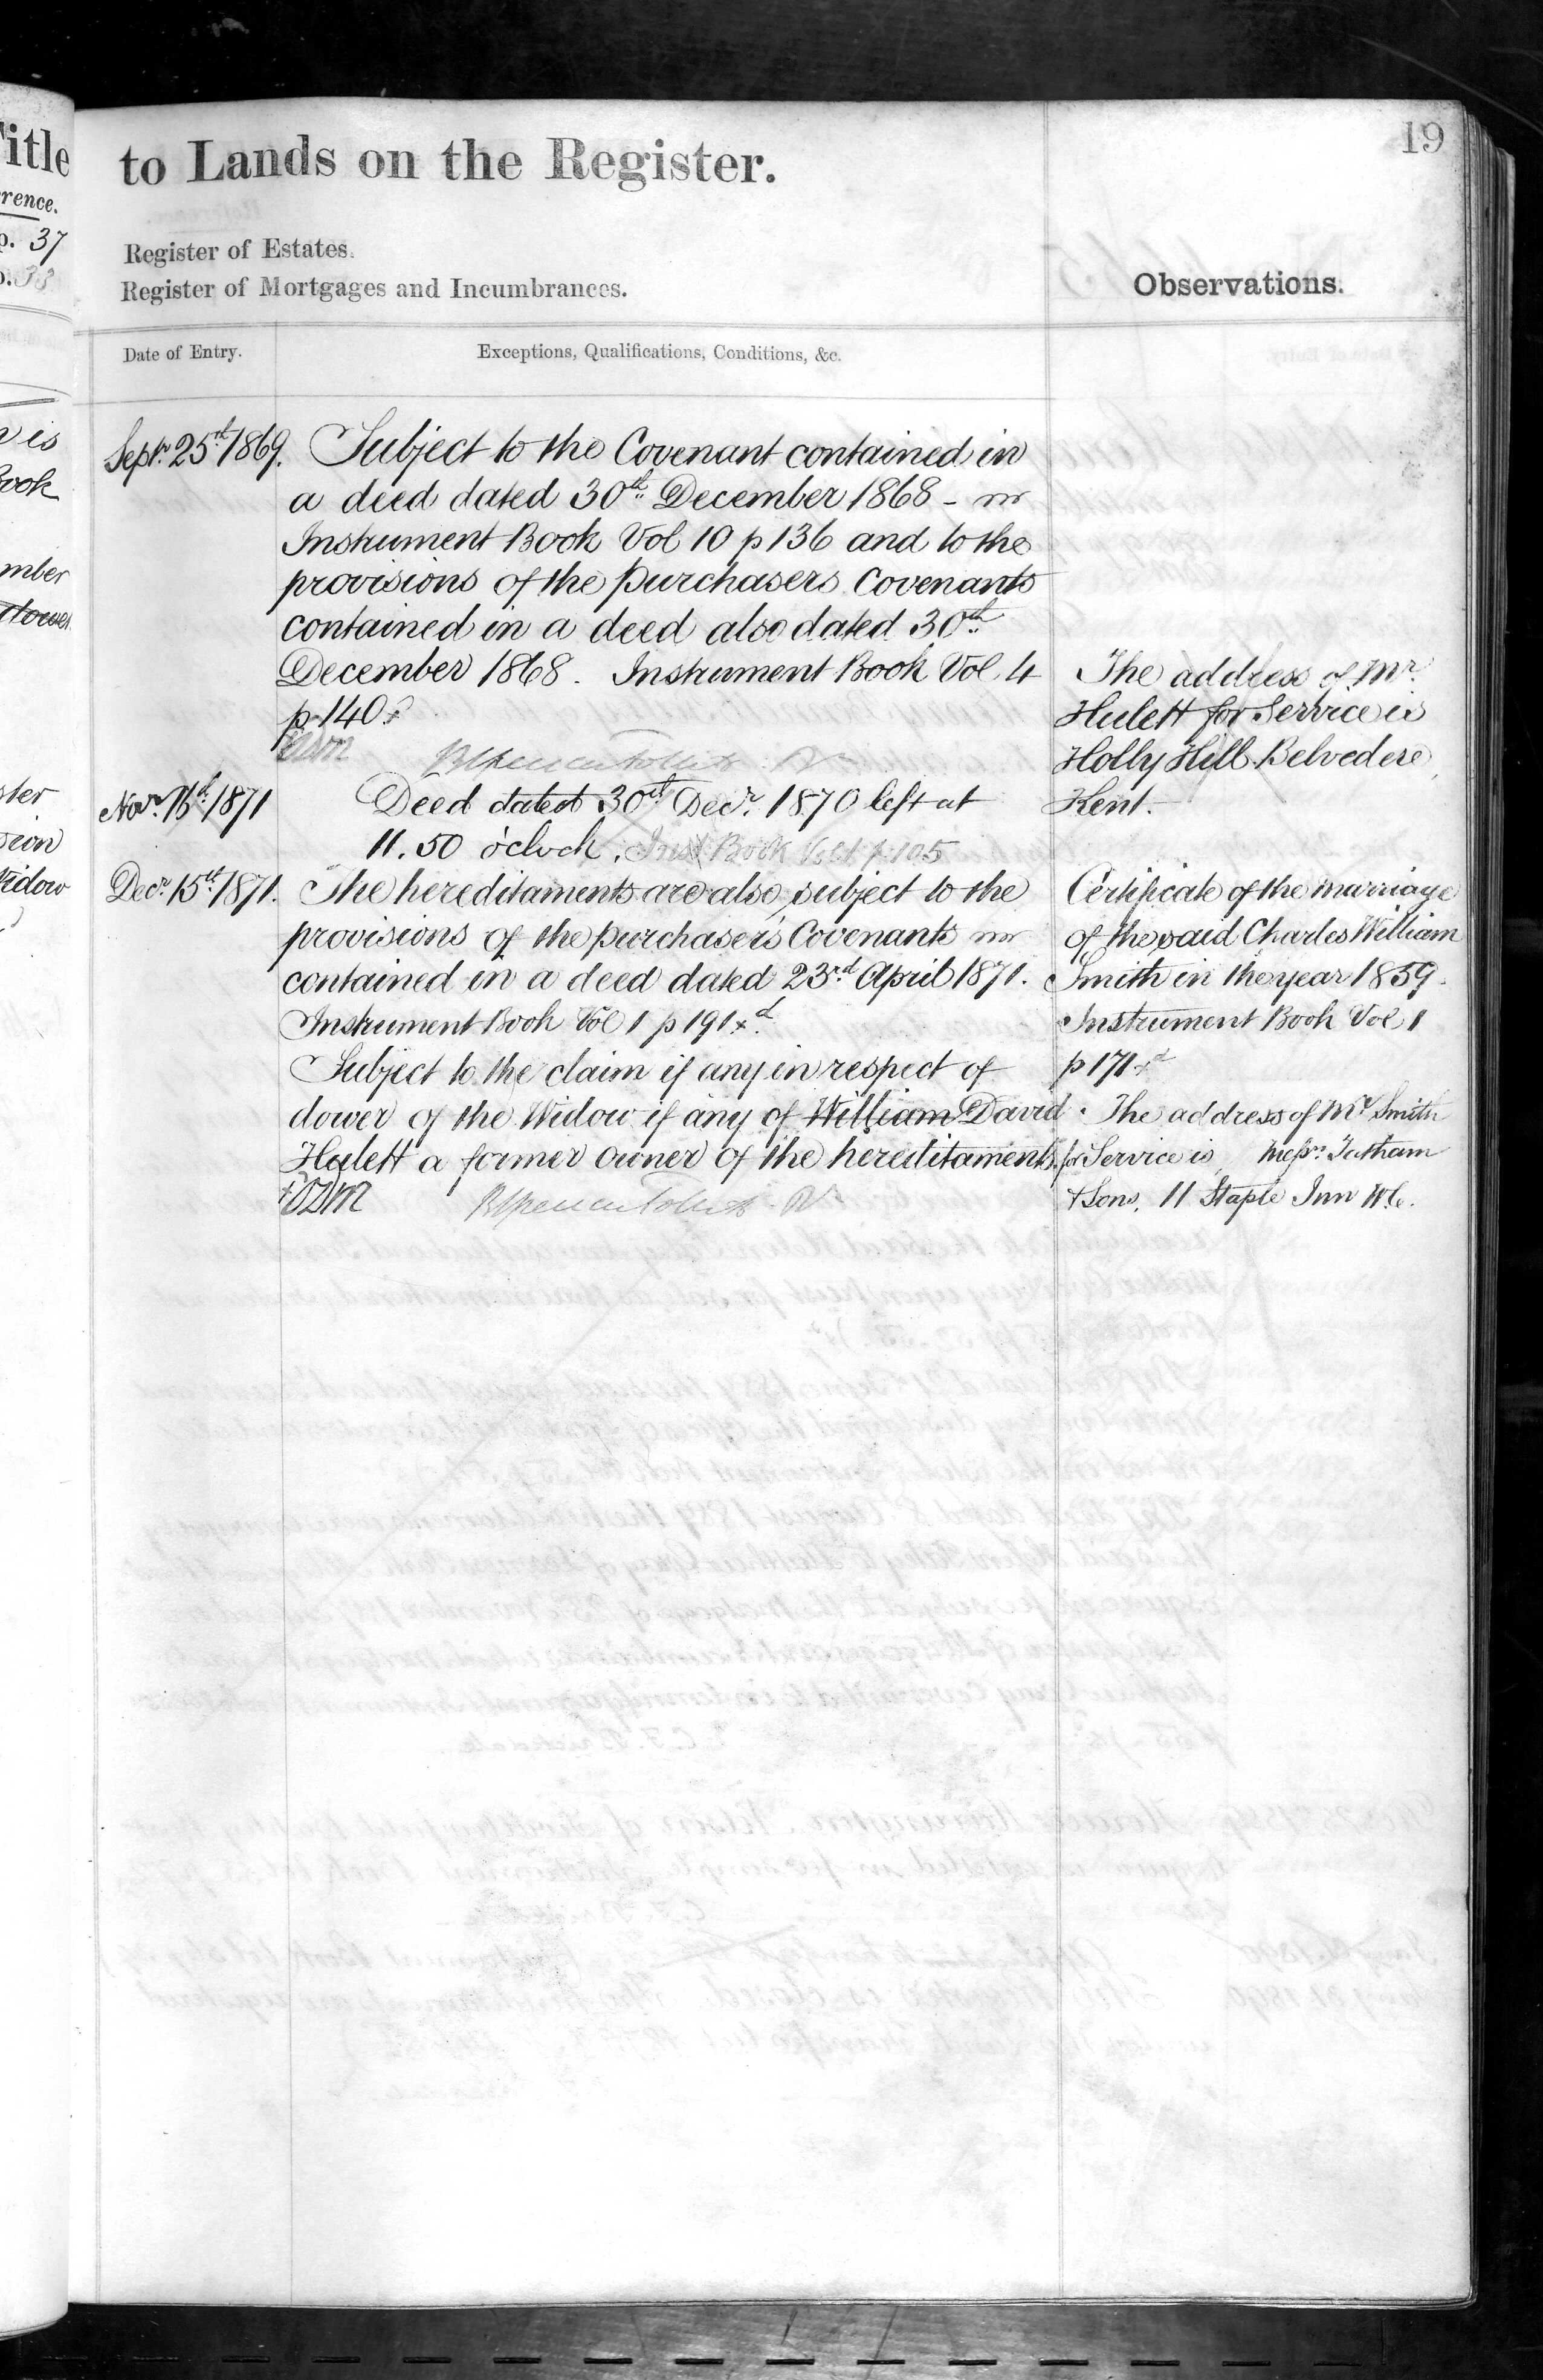 itle
rence.
p. 37
p. 38
n is
ook
mber
dower
ster
sion
Widow
to Lands on the Register.
19
Register of Estates.
Register of Mortgages and Incumbrances.
Observations.
Date of Entry.
Exceptions, Qualifications, Conditions, &c.
Septr. 25th 1869.
Subject to the Covenant contained in
a deed dated 30th December 1868 -
Instrument Book Vol 10 p 136 and to the
provisions of the purchasers Covenants
contained in a deed also dated 30th
December 1868. Instrument Book Vol 4
p 140
Novr. 15th 1871
Deed dated 30th Decr. 1870 left at
11.50 o'clock. Inst Book Vol 1 p 105
Decr. 15th 1871.
The hereditaments are also subject to the
provisions of the purchaser's Covenants
contained in a deed dated 23rd April 1871.
Instrument Book Vol 1 p 191
Subject to the claim if any in respect of
dower of the Widow if any of William David
Hulett a former owner of the hereditaments.
The address of Mr.
Hulett for Service is
Holly Hill Belvedere,
Kent.
Certificate of the marriage
of the said Charles William
Smith in the year 1859.
Instrument Book Vol 1
p 171
The address of Mr Smith
for Service is Messrs. Tatham
& Sons, 11 Staple Inn W.C.